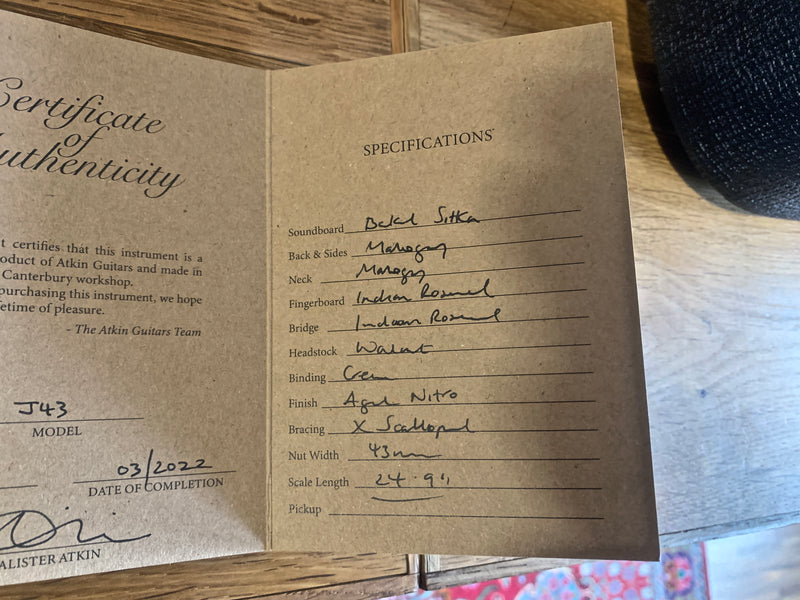 Certificate
of
Authenticity
t certifies that this instrument is a
roduct of Atkin Guitars and made in
Canterbury workshop.
purchasing this instrument, we hope
fetime of pleasure.
- The Atkin Guitars Team
J43
MODEL
03/2022
DATE OF COMPLETION
ALISTER ATKIN
SPECIFICATIONS
Soundboard Baked Sitka
Back & Sides Mahogany
Neck Mahogany
Fingerboard Indian Rosewood
Bridge Indian Rosewood
Headstock Walnut
Binding Cream
Finish Aged Nitro
Bracing X Scalloped
Nut Width 43mm
Scale Length 24.9"
Pickup